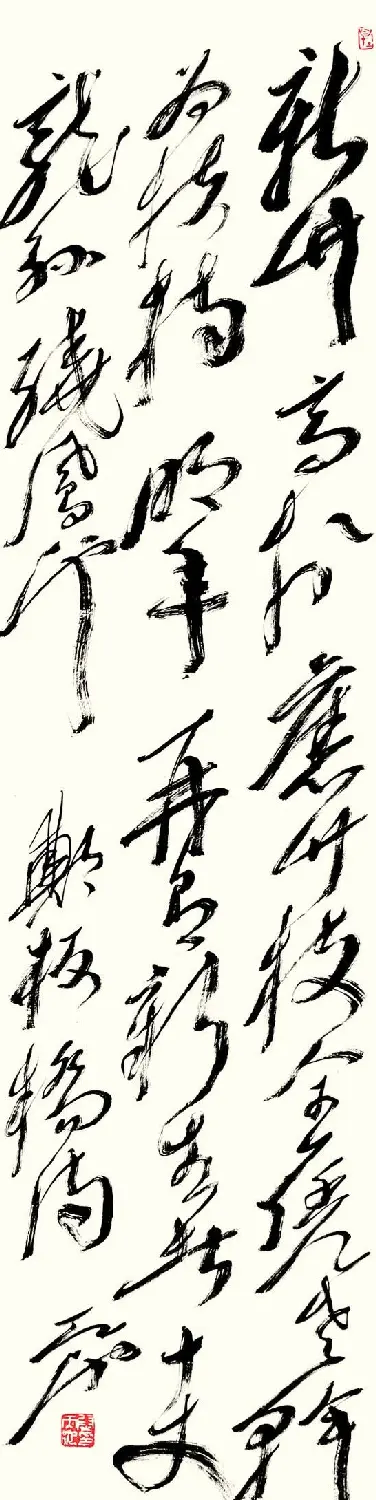 新竹高於舊竹枝全憑老幹
為扶持明年再有新生者十丈
龍孫繞鳳池 鄭板橋詩